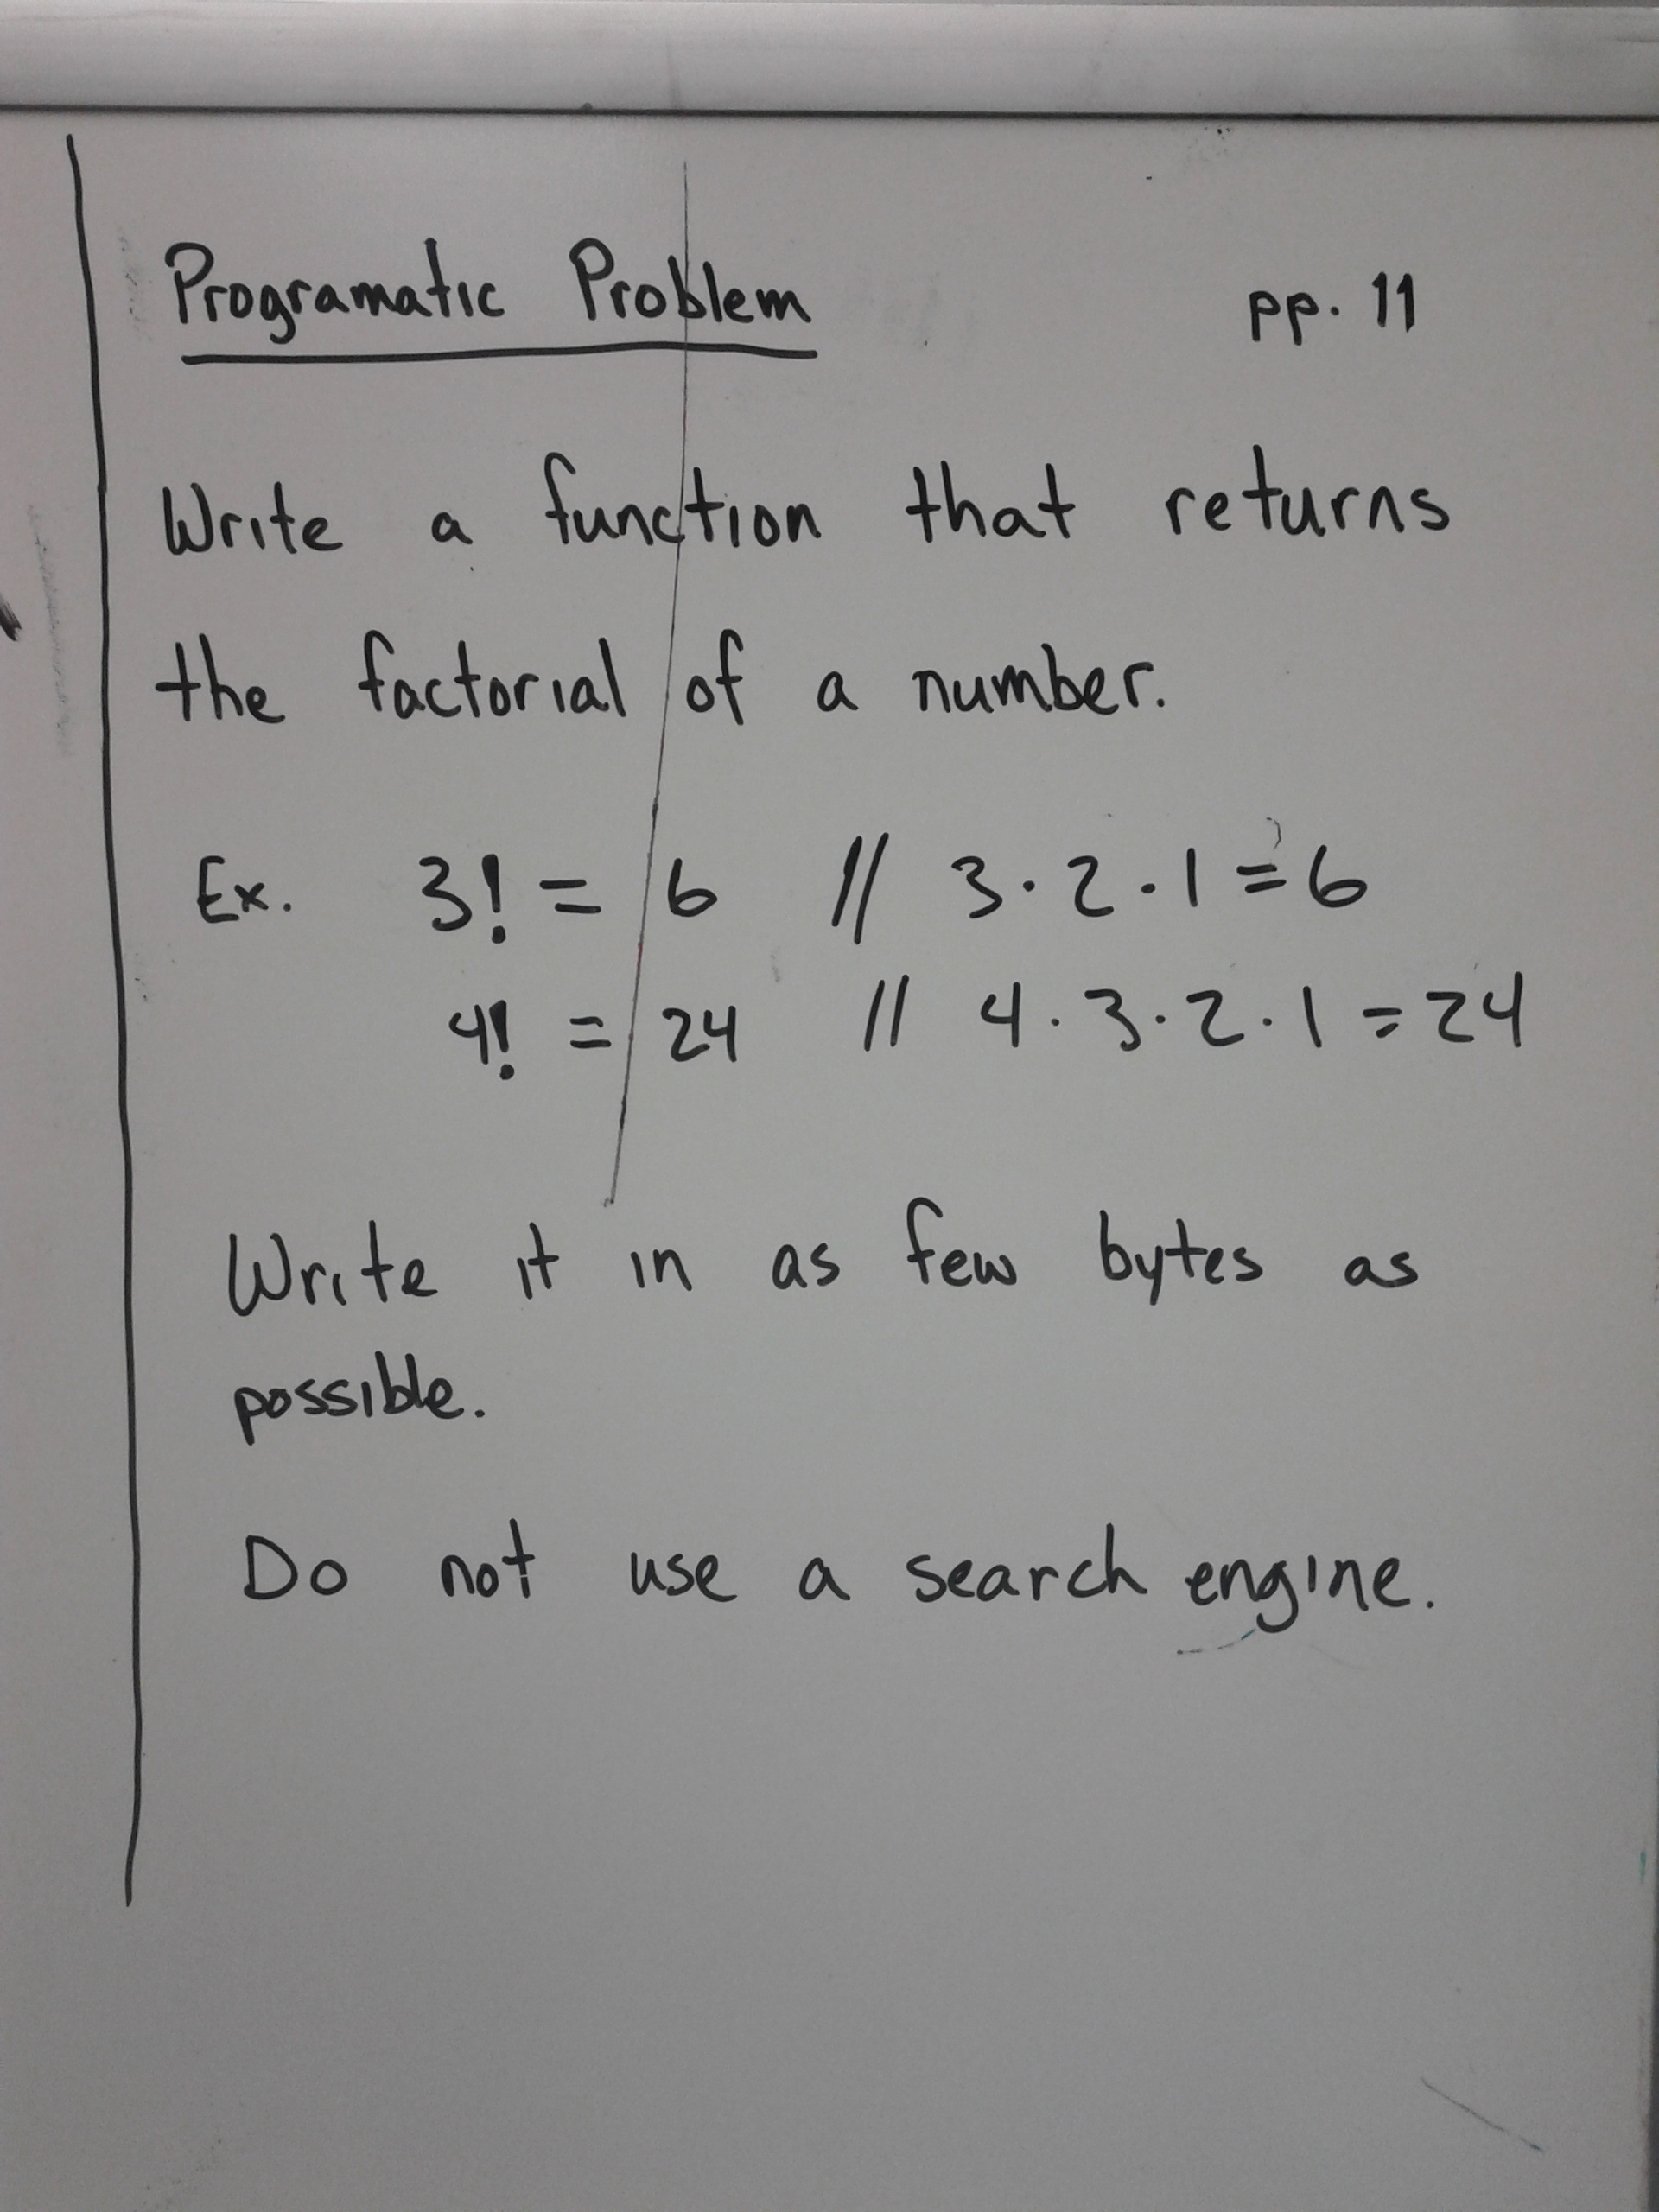 Programatic Problem pp. 11
Write a function that returns
the factorial of a number.
Ex. 3! = 6 // 3 · 2 · 1 = 6
4! = 24 // 4 · 3 · 2 · 1 = 24
Write it in as few bytes as
possible.
Do not use a search engine.